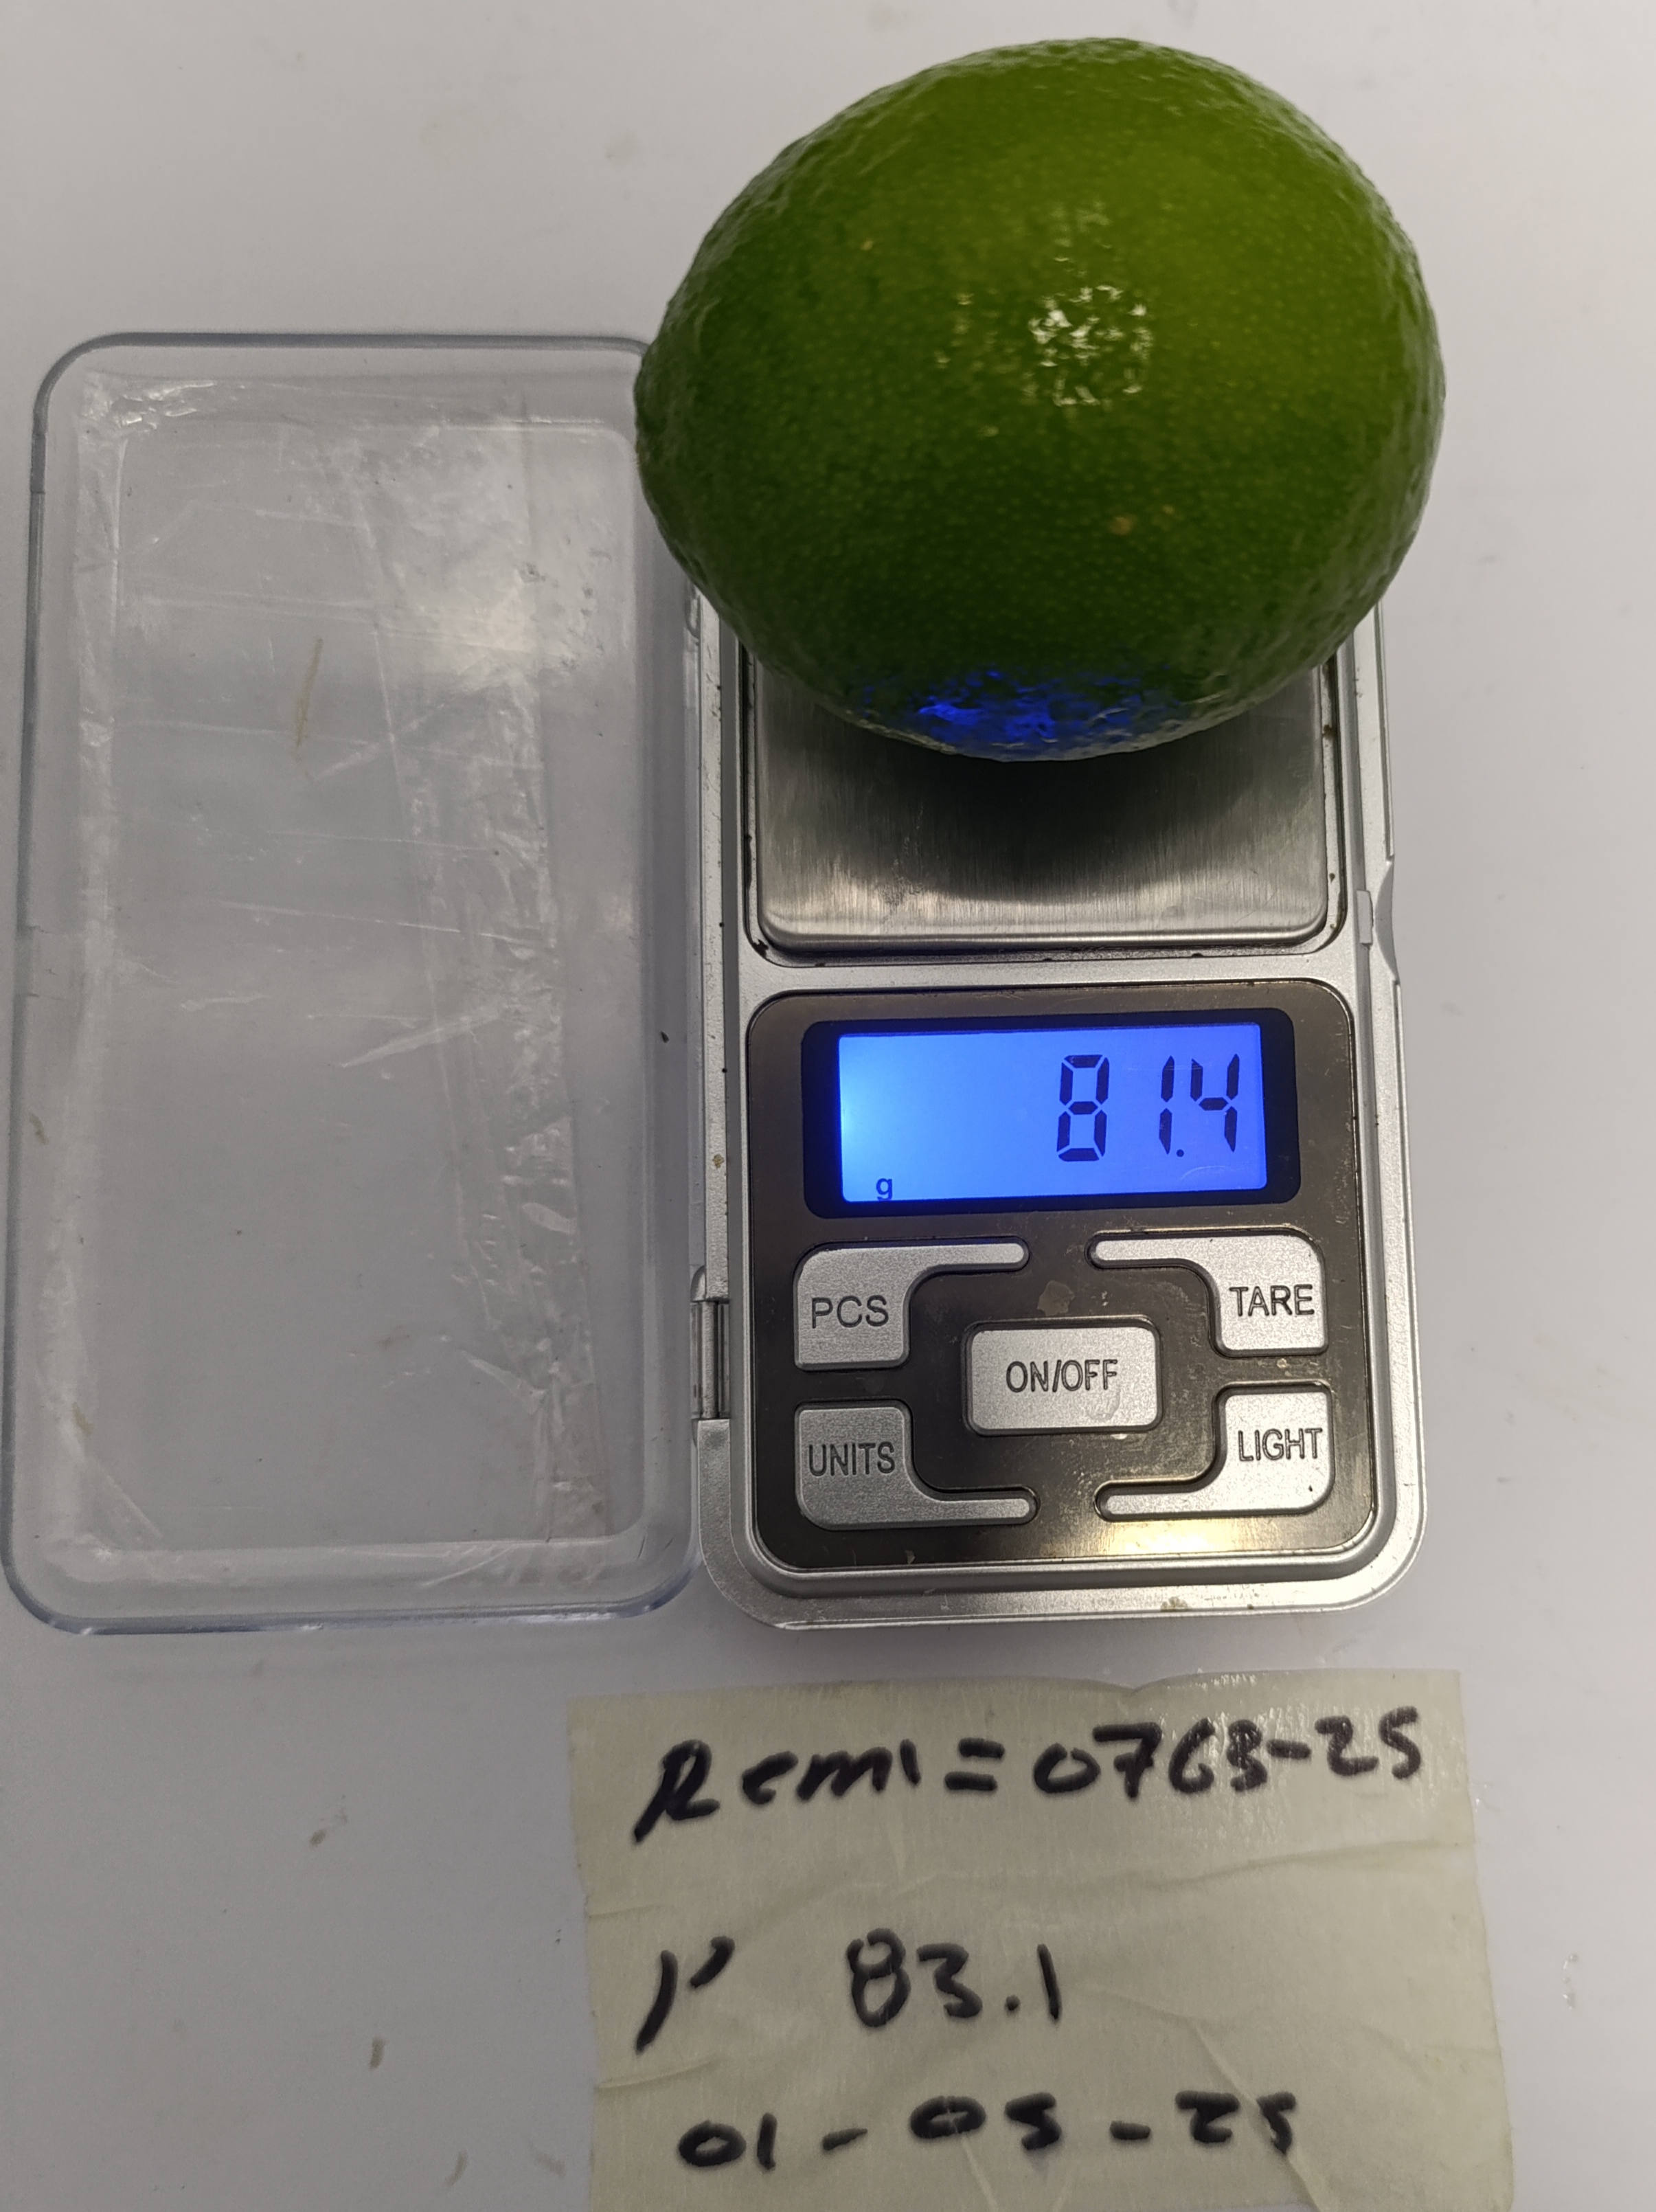 81.4
g
PCS
TARE
ON/OFF
UNITS
LIGHT
Remi=0763-25
P 83.1
01-05-25